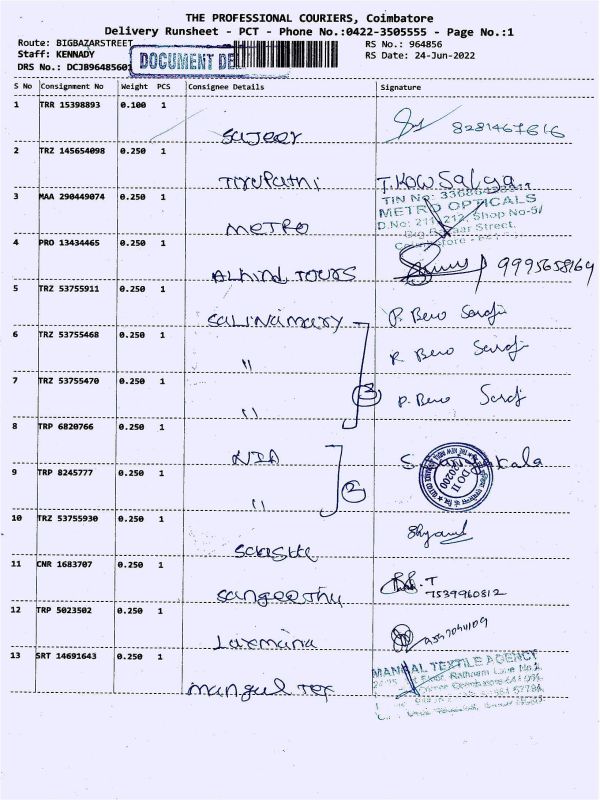 THE PROFESSIONAL COURIERS, Coimbatore
Delivery Runsheet - PCT - Phone No.:0422-3505555 - Page No.:1
Route: BIGBAZARSTREET RS No.: 964856
Staff: KENNADY DOCUMENT DE RS Date: 24-Jun-2022
DRS No.: DCJB96485601
S No Consignment No Weight PCS Consignee Details Signature
1 TRR 15398893 0.100 1 Sajeer 8281467616
2 TRZ 145654098 0.250 1 Tirupathi T. KOWSalya
3 MAA 290449074 0.250 1 METRO
TIN No:
METRO OPTICALS
D.No: 211, 212, Shop No-5/
Street,
4 PRO 13434465 0.250 1 ALHIND TOURS 9995658169
5 TRZ 53755911 0.250 1 Salinamary P. Beno
6 TRZ 53755468 0.250 1 " Beno
7 TRZ 53755470 0.250 1 " 3 P. Beno
8 TRP 6820766 0.250 1 NIA
9 TRP 8245777 0.250 1 " 2
10 TRZ 53755930 0.250 1
11 CNR 1683707 0.250 1 Sangeethu T
7539960812
12 TRP 5023502 0.250 1 Laxmana
13 SRT 14691643 0.250 1 mangul Tex
MANGAL TEXTILE AGENCY